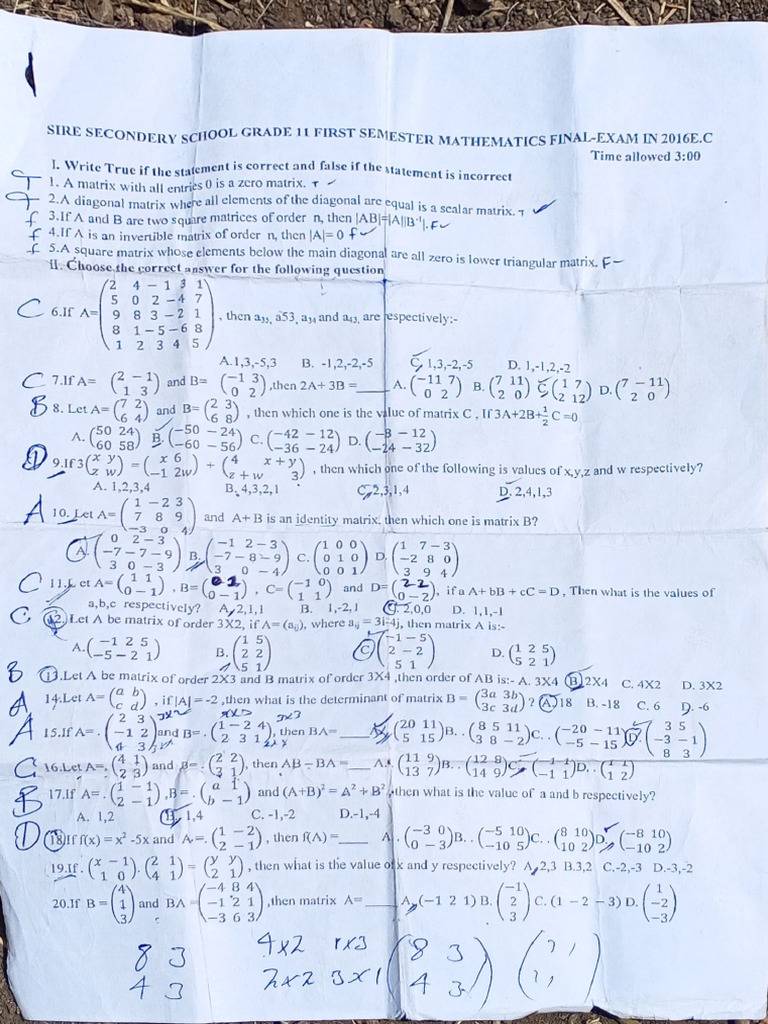 SIRE SECONDERY SCHOOL GRADE 11 FIRST SEMESTER MATHEMATICS FINAL-EXAM IN 2016E.C
Time allowed 3:00
I. Write True if the statement is correct and false if the statement is incorrect
T 1. A matrix with all entries 0 is a zero matrix. T ✓
T 2.A diagonal matrix where all elements of the diagonal are equal is a scalar matrix. T ✓
f 3.If A and B are two square matrices of order n, then |AB|=|A||B⁻¹|. F ✓
f 4.If A is an invertible matrix of order n, then |A|= 0 f ✓
f 5.A square matrix whose elements below the main diagonal are all zero is lower triangular matrix. F
II. Choose the correct answer for the following question
2 4 − 1 3 1
5 0 2 − 4 7
C 6.If A= 9 8 3 − 2 1 , then a₃₅, a53, a₃₄ and a₄₃, are respectively:-
8 1 − 5 − 6 8
1 2 3 4 5
A.1,3,-5,3 B. -1,2,-2,-5 C, 1,3,-2,-5 D. 1,-1,2,-2
C 7.If A= (2 − 1 / 1 3) and B= (−1 3 / 0 2) ,then 2A+ 3B = ____ A. (−11 7 / 0 2) B. (7 11 / 2 0) C (1 7 / 2 12) D. (7 − 11 / 2 0)
B 8. Let A= (7 2 / 6 4) and B= (2 3 / 6 8) , then which one is the value of matrix C , If 3A+2B+½C =0
A. (50 24 / 60 58) B. (−50 − 24 / −60 − 56) C. (−42 − 12 / −36 − 24) D. (−8 − 12 / −24 − 32)
D 9.If3 (x y / z w) = (x 6 / −1 2w) + (4 x + y / z + w 3) , then which one of the following is values of x,y,z and w respectively?
A. 1,2,3,4 B. 4,3,2,1 C, 2,3,1,4 D. 2,4,1,3
A 10. Let A= (1 − 2 3 / 7 8 9 / −3 0 4) and A+ B is an identity matrix, then which one is matrix B?
A. (0 2 − 3 / −7 − 7 − 9 / 3 0 − 3) B. (−1 2 − 3 / −7 − 8 − 9 / 3 0 − 4) C. (1 0 0 / 0 1 0 / 0 0 1) D. (1 7 − 3 / −2 8 0 / 3 9 4)
C 11.Let A= (1 1 / 0 − 1) , B= (0 1 / 0 − 1), C= (−1 0 / 1 1) and D= (2 2 / 0 − 2), if a A+ bB + cC = D , Then what is the values of
a,b,c respectively? A, 2,1,1 B. 1,-2,1 C. 2,0,0 D. 1,1,-1
C 12. Let A be matrix of order 3X2, if A= (aᵢⱼ), where aᵢⱼ = 3i-4j, then matrix A is:-
A. (−1 2 5 / −5 − 2 1) B. (1 5 / 2 2 / 5 1) C (−1 − 5 / 2 − 2 / 5 1) D. (1 2 5 / 5 2 1)
B 13.Let A be matrix of order 2X3 and B matrix of order 3X4 ,then order of AB is:- A. 3X4 B. 2X4 C. 4X2 D. 3X2
A 14.Let A= (a b / c d) , if |A|= -2 ,then what is the determinant of matrix B = (3a 3b / 3c 3d) ? A. 18 B. -18 C. 6 D. -6
A 15.If A= . (2 3 / −1 2 / 4 3) and B= . (1 − 2 4 / 2 3 1), then BA= ____ A. (20 11 / 5 15) B. . (8 5 11 / 3 8 − 2) C. . (−20 − 11 / −5 − 15) D. (3 5 / −3 − 1 / 8 3)
C 16.Let A=. (4 1 / 2 3) and B= . (2 2 / 3 1), then AB − BA = ____ A. (11 9 / 13 7) B. . (12 8 / 14 9) C. (−1 1 / −1 1) D. . (1 1 / 1 2)
B 17.If A= . (1 − 1 / 2 − 1) ,B= . (a 1 / b − 1) and (A+B)² = A² + B² ,then what is the value of a and b respectively?
A. 1,2 B, 1,4 C. -1,-2 D.-1,-4
D 18.If f(x) = x² -5x and A =. (1 − 2 / 2 − 1) , then f(A) =____ A . (−3 0 / 0 − 3) B. . (−5 10 / −10 5) C. . (8 10 / 10 2) D. (−8 10 / −10 2)
19.If . (x − 1 / 1 0). (2 1 / 4 1) = (y y / 2 1) , then what is the value of x and y respectively? A, 2,3 B.3,2 C.-2,-3 D.-3,-2
20.If B = (4 / 1 / 3) and BA = (−4 8 4 / −1 2 1 / −3 6 3) ,then matrix A= ____ A. (−1 2 1) B. (−1 / 2 / 3) C. (1 − 2 − 3) D. (1 / −2 / −3)
8 3 4x2 1x3 (8 3
4 3 2x2 3x1 4 3)